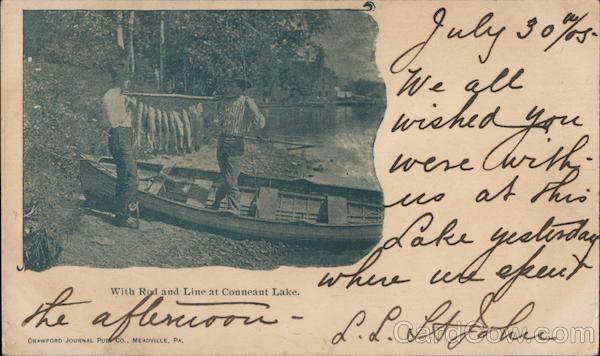 July 30 th/05-
We all
wished you
were with-
us at this
Lake yesterday
where we spent
the afternoon -
L. L. St John
With Rod and Line at Conneaut Lake.
CRAWFORD JOURNAL PUB. CO., MEADVILLE, PA.
CardCow.com